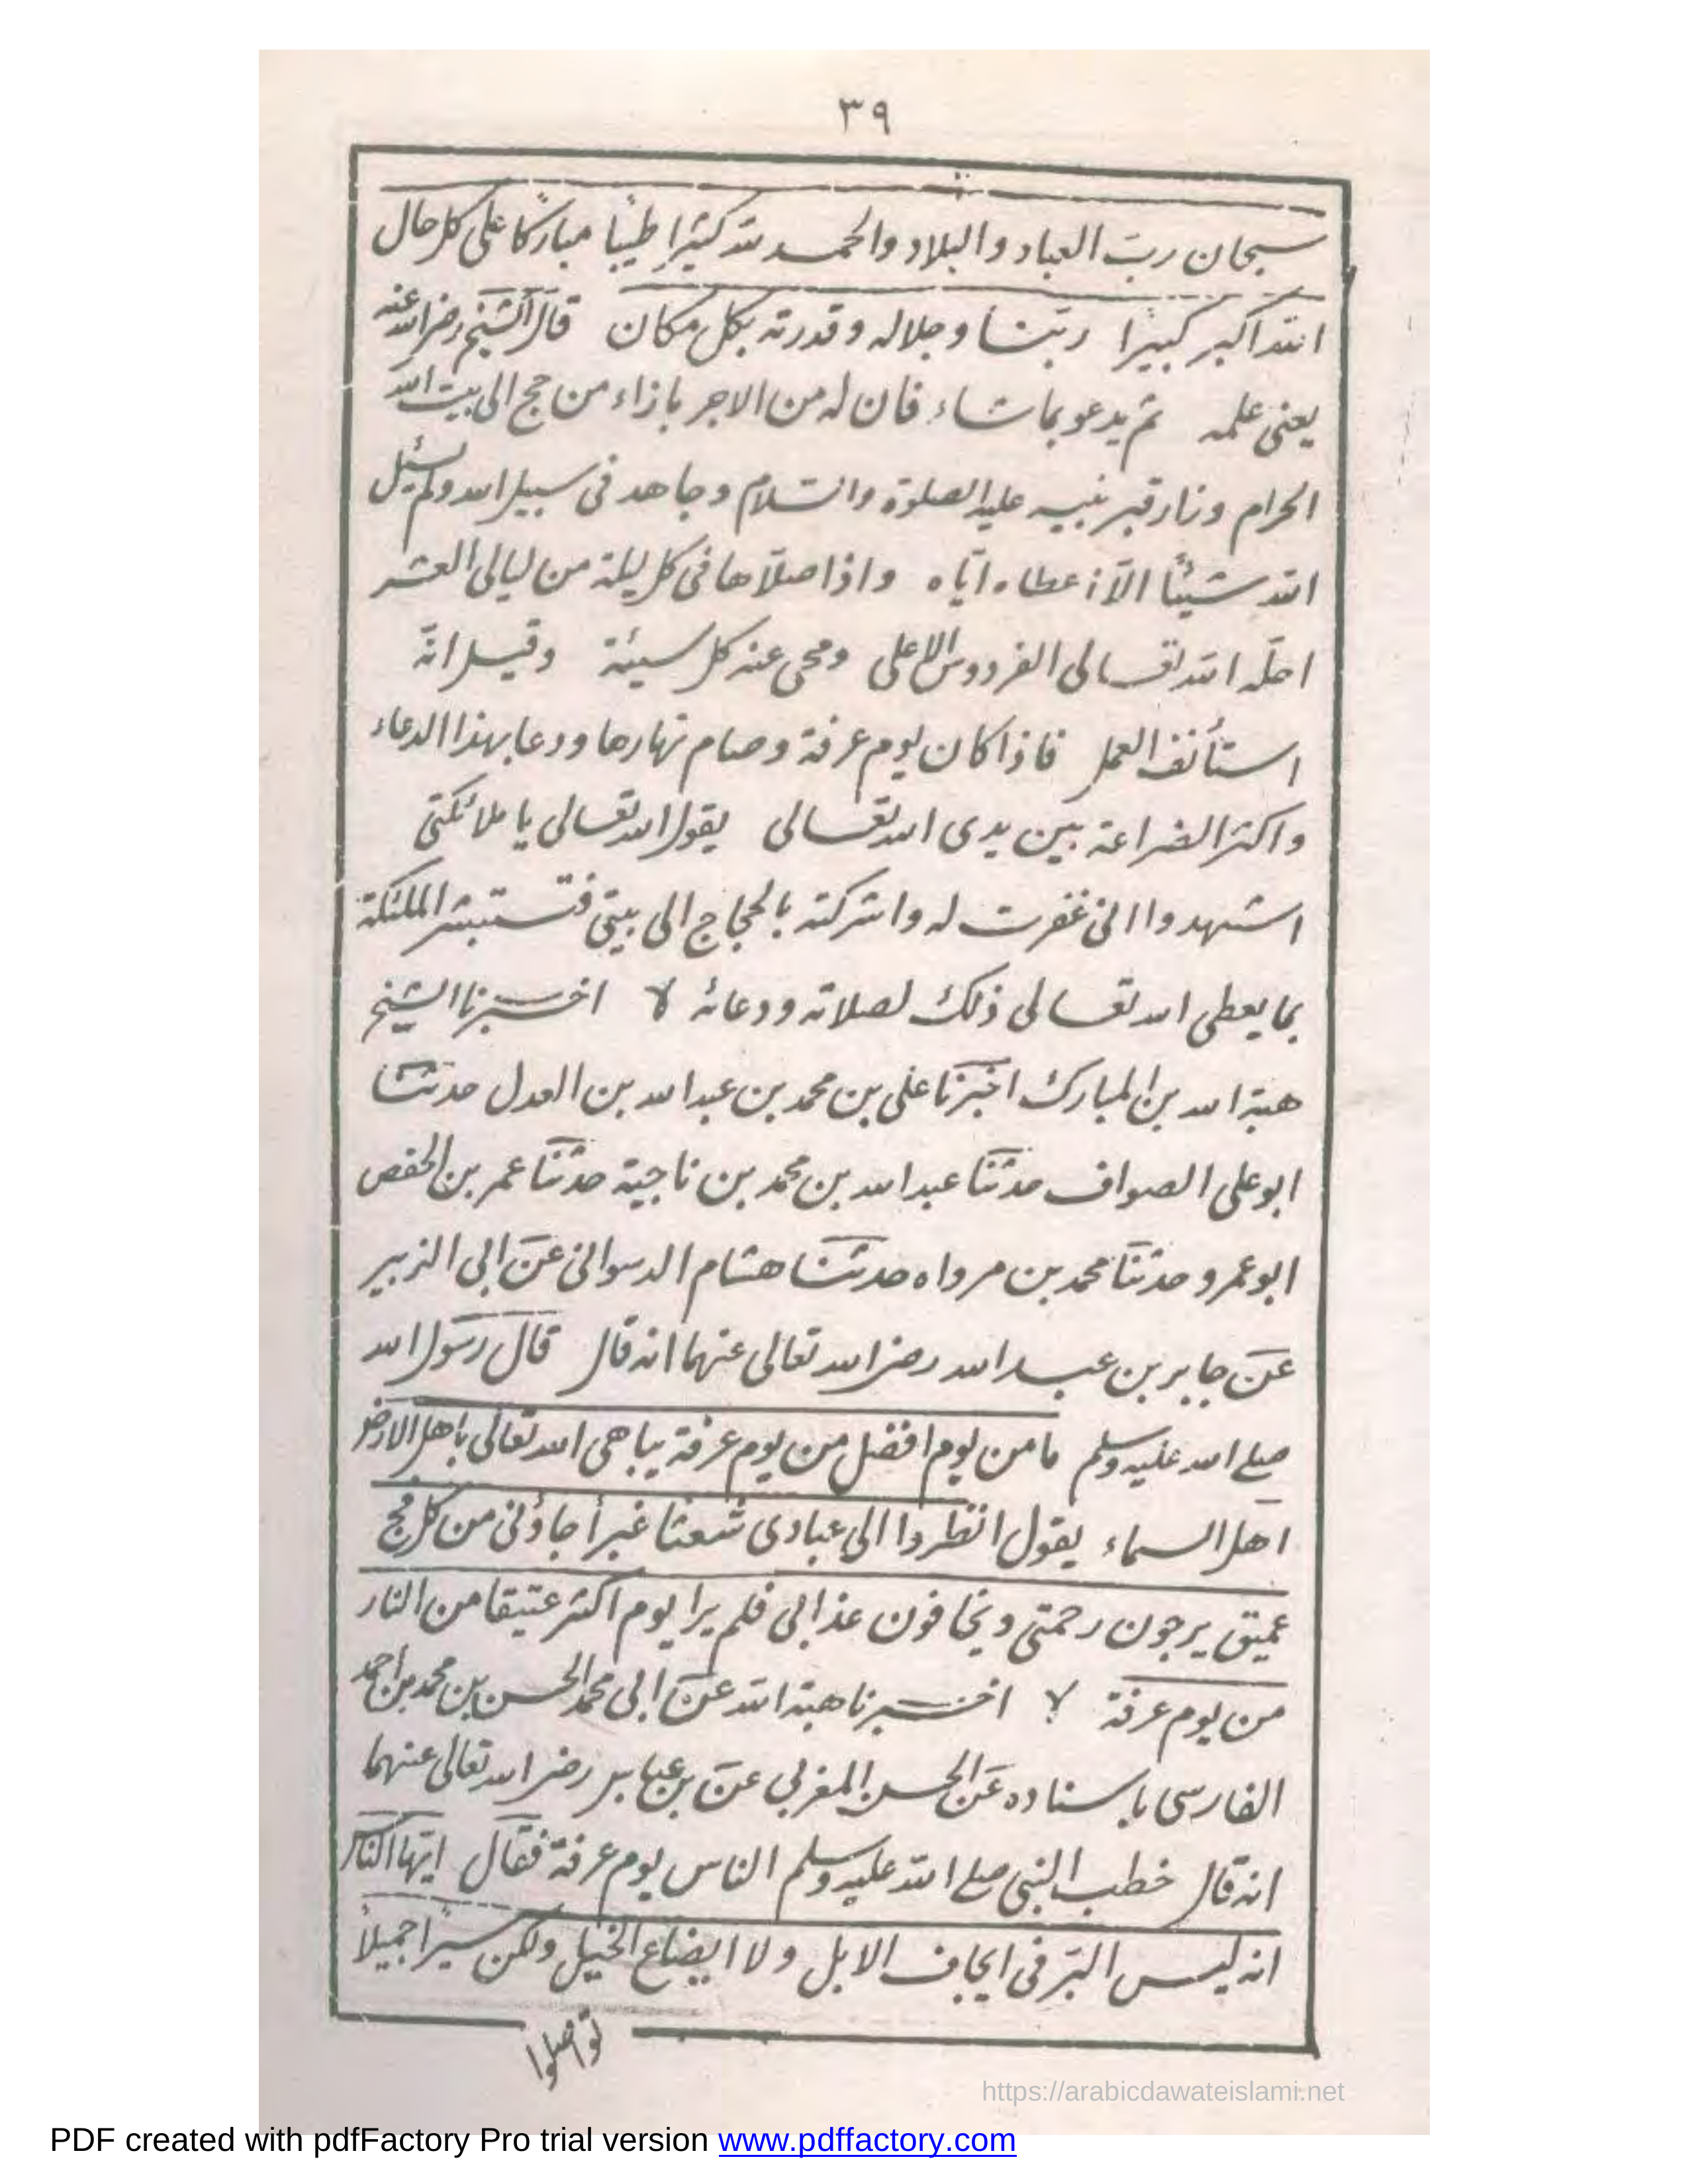 ٣٩
سبحان ربّ العباد والبلاد والحمد لله كثيرا طيبا مباركا على كل حال
الله اكبر كبيرا ربّنا وجلاله وقدرته بكل مكان قال الشيخ رضى الله عنه
يعنى علمه ثم يدعو بما شاء فان له من الاجر بازاء من حج الى بيت الله
الحرام وزار قبر نبيه عليه الصلوة والسلام وجاهد فى سبيل الله ولم يسئل
الله شيئا الّا اعطاه ايّاه واذا صلّاها فى كل ليلة من ليالى العشر
احلّه الله تعالى الفردوس الاعلى ومحى عنه كل سيئة وقيل انّه
استأنف العمل فاذا كان يوم عرفة وصام نهارها ودعا بهذا الدعاء
واكثر الضراعة بين يدى الله تعالى يقول الله تعالى يا ملائكتى
اشهدوا انى غفرت له واشركته بالحجاج الى بيتى فتستبشر الملئكة
بما يعطى الله تعالى ذلك لصلاته ودعائه لا اخبرنا الشيخ
هبة الله بن المبارك اخبرنا على بن محمد بن عبدالله بن العدل حدثنا
ابو على الصواف حدثنا عبدالله بن محمد بن ناجية حدثنا عمر بن الحفص
ابو عمرو حدثنا محمد بن مرواه حدثنا هشام الدسوانى عن ابى الزبير
عن جابر بن عبدالله رضى الله تعالى عنهما انه قال قال رسول الله
صلى الله عليه وسلم ما من يوم افضل من يوم عرفة يباهى الله تعالى باهل الارض
اهل السماء يقول انظروا الى عبادى شعثا غبرأ جاؤنى من كل فج
عميق يرجون رحمتى ويخافون عذابى فلم ير ا يوم اكثر عتيقا من النار
من يوم عرفة لا اخبرنا هبة الله عن ابى محمد الحسن بن محمد بن احمد
الفارسى باسناده عن الحسن المغربى عن بن عباس رضى الله تعالى عنهما
انه قال خطب النبى صلى الله عليه وسلم الناس يوم عرفة فقال ايّها الناس
انه ليس البرّ فى ايجاف الابل ولا ايضاع الخيل ولكن سيرا جميلا
تواصلوا
https://arabicdawateislami.net
PDF created with pdfFactory Pro trial version www.pdffactory.com